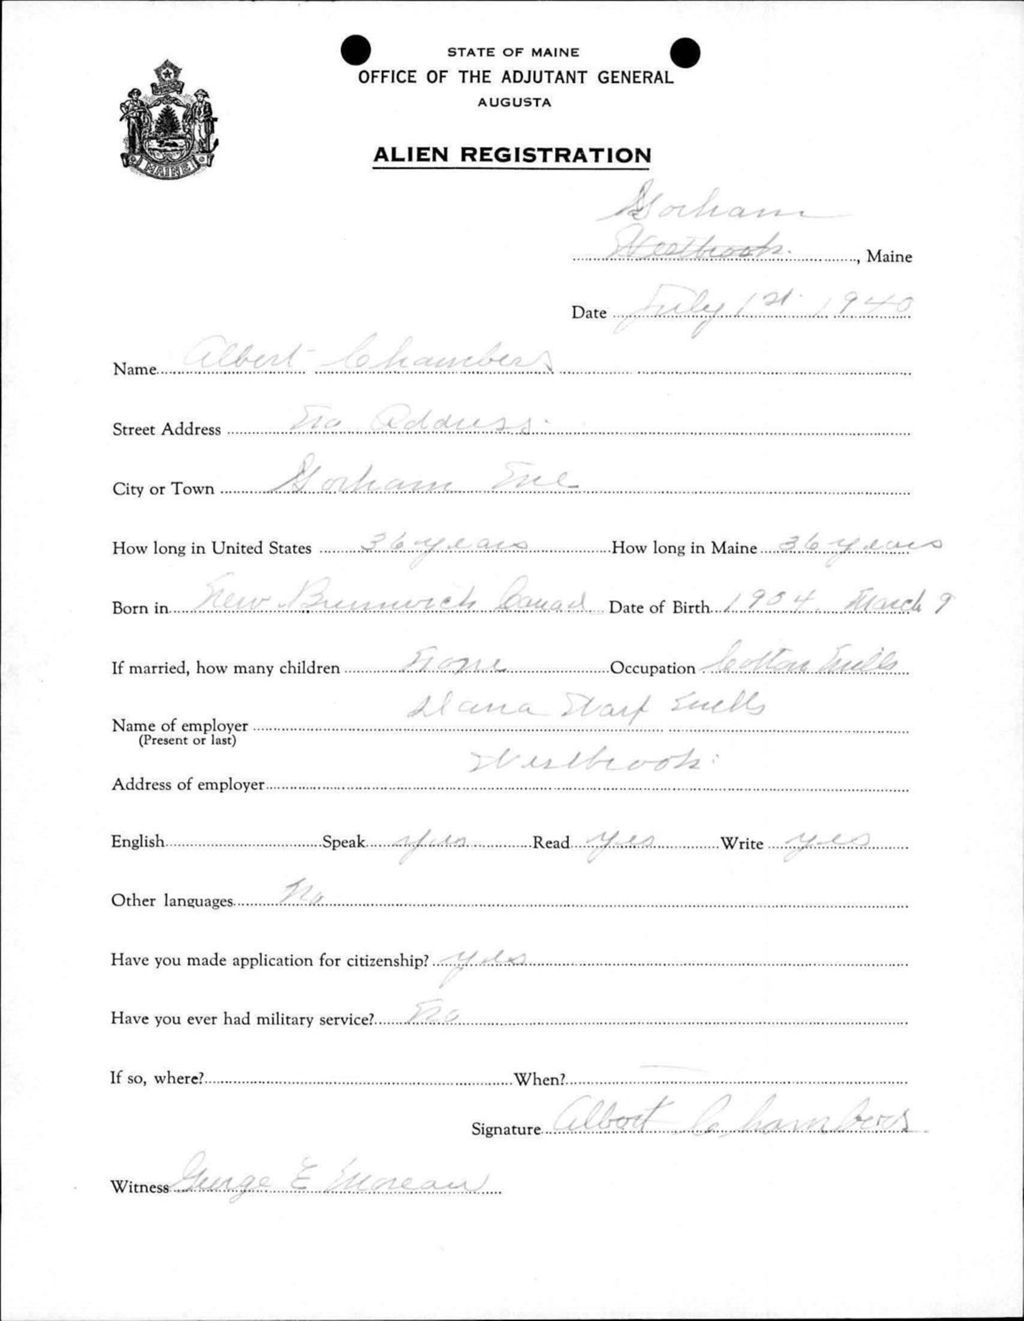 STATE OF MAINE
OFFICE OF THE ADJUTANT GENERAL
AUGUSTA
MAINE
ALIEN REGISTRATION
Gorham
Westbrook, Maine
Date July 1st 1940
Name Albert Chambers
Street Address No Address
City or Town Gorham Me
How long in United States 36 years How long in Maine 36 years
Born in New Brunswick Canad Date of Birth 1904 March 9
If married, how many children None Occupation Cotton Mills
Name of employer Dana Warp Mills
(Present or last)
Address of employer Westbrook
English Speak yes Read yes Write yes
Other languages No
Have you made application for citizenship? yes
Have you ever had military service? No
If so, where? When?
Signature Albert Chambers
Witness George E Moreau